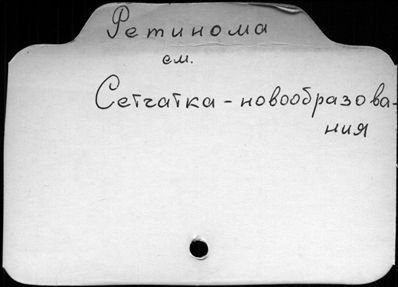 Ретинома
см.
Сетчатка - новообразова-
ния